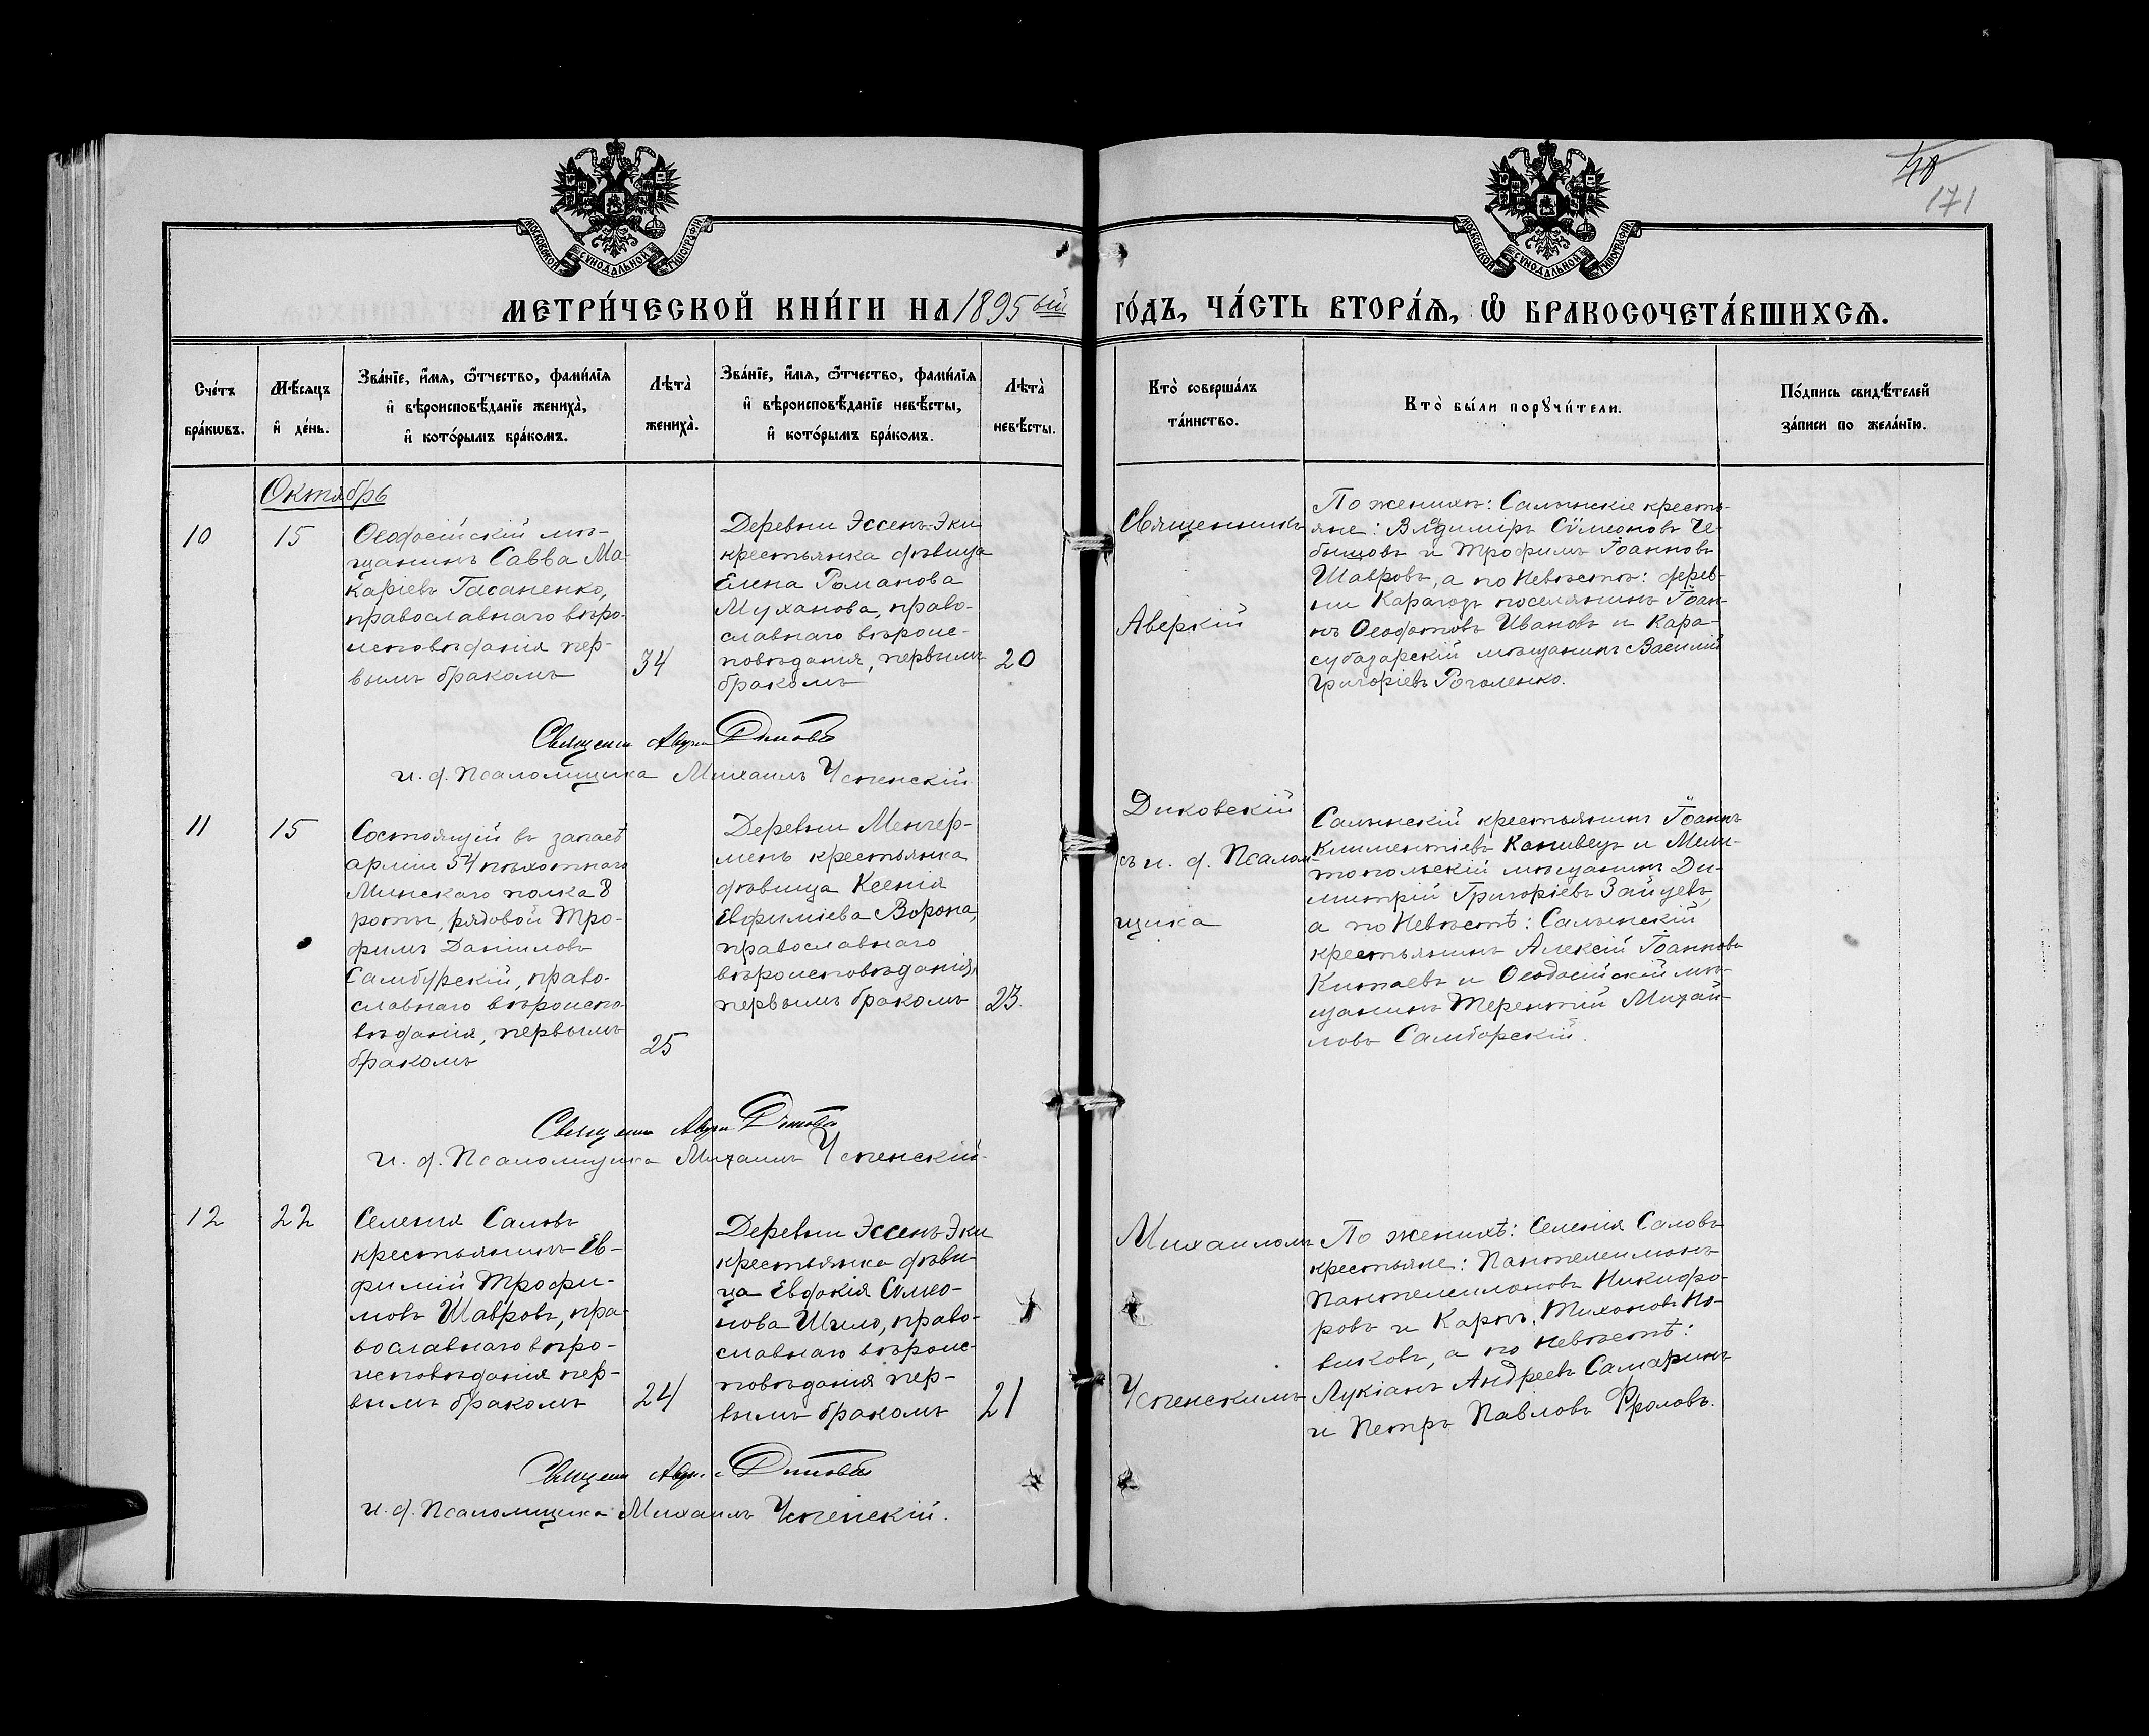 48
171
МОСКОВСКОЙ СѴНОДАЛЬНОЙ ТИПОГРАФІИ
МОСКОВСКОЙ СѴНОДАЛЬНОЙ ТИПОГРАФІИ
МЕТРИ́ЧЕСКОЙ КНИ́ГИ НА 1895ый ГО́ДЪ, ЧА́СТЬ ВТОРА́Ѧ, Ѽ БРАКОСОЧЕТА́ВШИХСѦ.
Сче́тъ
бра́кѡвъ.
Мѣ́сяцъ
и҆ де́нь.
Зва́нїе, и҆́мѧ, ѻ҆́тчество, фами́лїѧ
и҆ вѣроисповѣ́данїе жениха̀,
и҆ кото́рымъ бра́комъ.
Лѣта̀
жениха̀.
Зва́нїе, и҆́мѧ, ѻ҆́тчество, фами́лїѧ
и҆ вѣроисповѣ́данїе невѣ́сты,
и҆ кото́рымъ бра́комъ.
Лѣта̀
невѣ́сты.
Кто̀ соверша́лъ
та́инство.
Кто̀ бы́ли порꙋчи́тели.
По́дпись свидѣ́телей
за́писи по жела́нїю.
Октябрь
10
15
Ѳеодосійскій мѣ-
щанинъ Савва Ма-
каріевъ Гасаненко,
православнаго вѣро-
исповѣданія пер-
вымъ бракомъ
34
Деревни Эссенъ-Эки
крестьянка дѣвица
Елена Романова
Муханова, право-
славнаго вѣроис-
повѣданія, первымъ
бракомъ
20
Священникъ
Аверкій
По женихѣ: Салынскіе кресть-
яне: Владиміръ Сѵмеоновъ Че-
бышовъ и Трофимъ Іоанновъ
Шавровъ, а по невѣстѣ: дерев-
ни Карагозъ поселянинъ Іоан-
нъ Ѳеодотовъ Ивановъ и Кара-
субазарскій мѣщанинъ Василій
Григоріевъ Роголенко.
Священн Аверк Диковс
и. д. Псаломщика Михаилъ Успенскій
11
15
Состоящій въ запасѣ
арміи 54 пѣхотнаго
Минскаго полка 8
роты, рядовой Тро-
фимъ Даніиловъ
Самбурскій, право-
славнаго вѣроиспо-
вѣданія, первымъ
бракомъ
25
Деревни Менгер-
менъ крестьянка
дѣвица Ксенія
Евфиміева Ворона,
православнаго
вѣроисповѣданія,
первымъ бракомъ
23.
Диковскій
съ и. д. Псалом-
щика
Салынскій крестьянинъ Іоаннъ
Климентіевъ Канивецъ и Мели-
топольскій мѣщанинъ Ди-
митрій Григоріевъ Зайцевъ,
а по невѣстѣ: Салынскій
крестьянинъ Алексій Іоанновъ
Китаевъ и Ѳеодосійскій мѣ-
щанинъ Терентій Михай-
ловъ Самборскій.
Священн Аверк Диковс
И. д. Псаломщика Михаилъ Успенскій
12
22
Селенія Саловъ
крестьянинъ Ев-
фимій Трофи-
мовъ Шавровъ, пра-
вославнаго вѣро-
исповѣданія пер-
вымъ бракомъ
24
Деревни Эссенъ-Эки
крестьянка дѣви-
ца Евдокія Сѵмео-
нова Шило, право-
славнаго вѣроис-
повѣданія пер-
вымъ бракомъ
21
Михаиломъ
Успенскимъ
По женихѣ: Селенія Саловъ
крестьяне: Пантелеимонъ
Пантелеимоновъ Никифо-
ровъ и Карпъ Тихоновъ Но-
виковъ, а по невѣстѣ:
Лукіанъ Андреевъ Самаринъ
и Петръ Павловъ Фроловъ.
Священн Аверк Диковс
и. д. Псаломщика Михаилъ Успенскій.